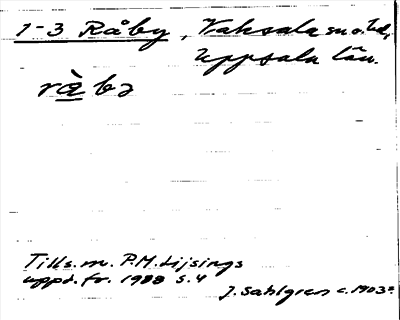 1-3 Råby, Vaksala sn o. hd,
Uppsala län.
rå̀bꝫ
Tills. m. P.M. Lijsings
uppt. fr. 1988 s. 4
J. Sahlgren c. 1903